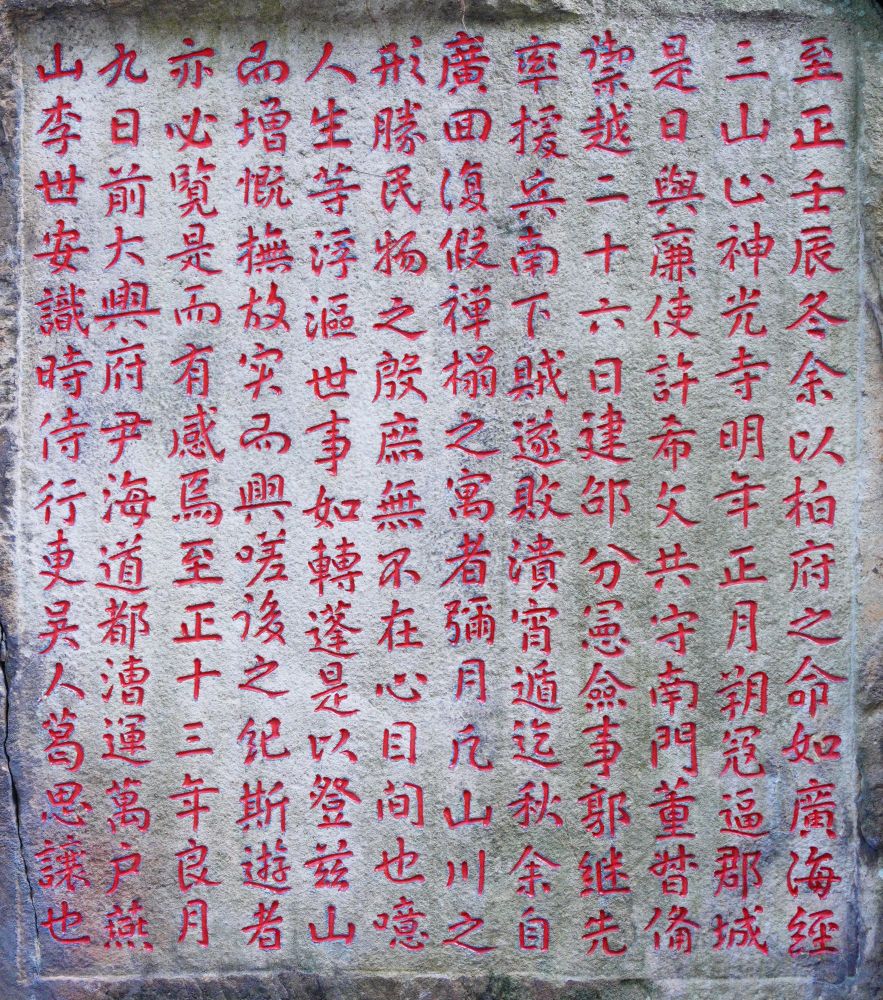 至正壬辰冬余以柏府之命如廣海經
三山心神光寺明年正月朔冦逼郡城
是日與廉使許希文共守南門董督備
禦越二十六日建邵分憲僉事郭继先
率援兵南下賊遂敗潰宵遁迄秋余自
廣回復假禅榻之寓者彌月凡山川之
形勝民物之殷庶無不在心目间也噫
人生等浮漚世事如轉蓬是以登兹山
而增慨撫放实而興嗟後之纪斯遊者
亦必覽是而有感焉至正十三年良月
九日前大興府尹海道都漕運萬户燕
山李世安識時侍行吏吴人葛思讓也